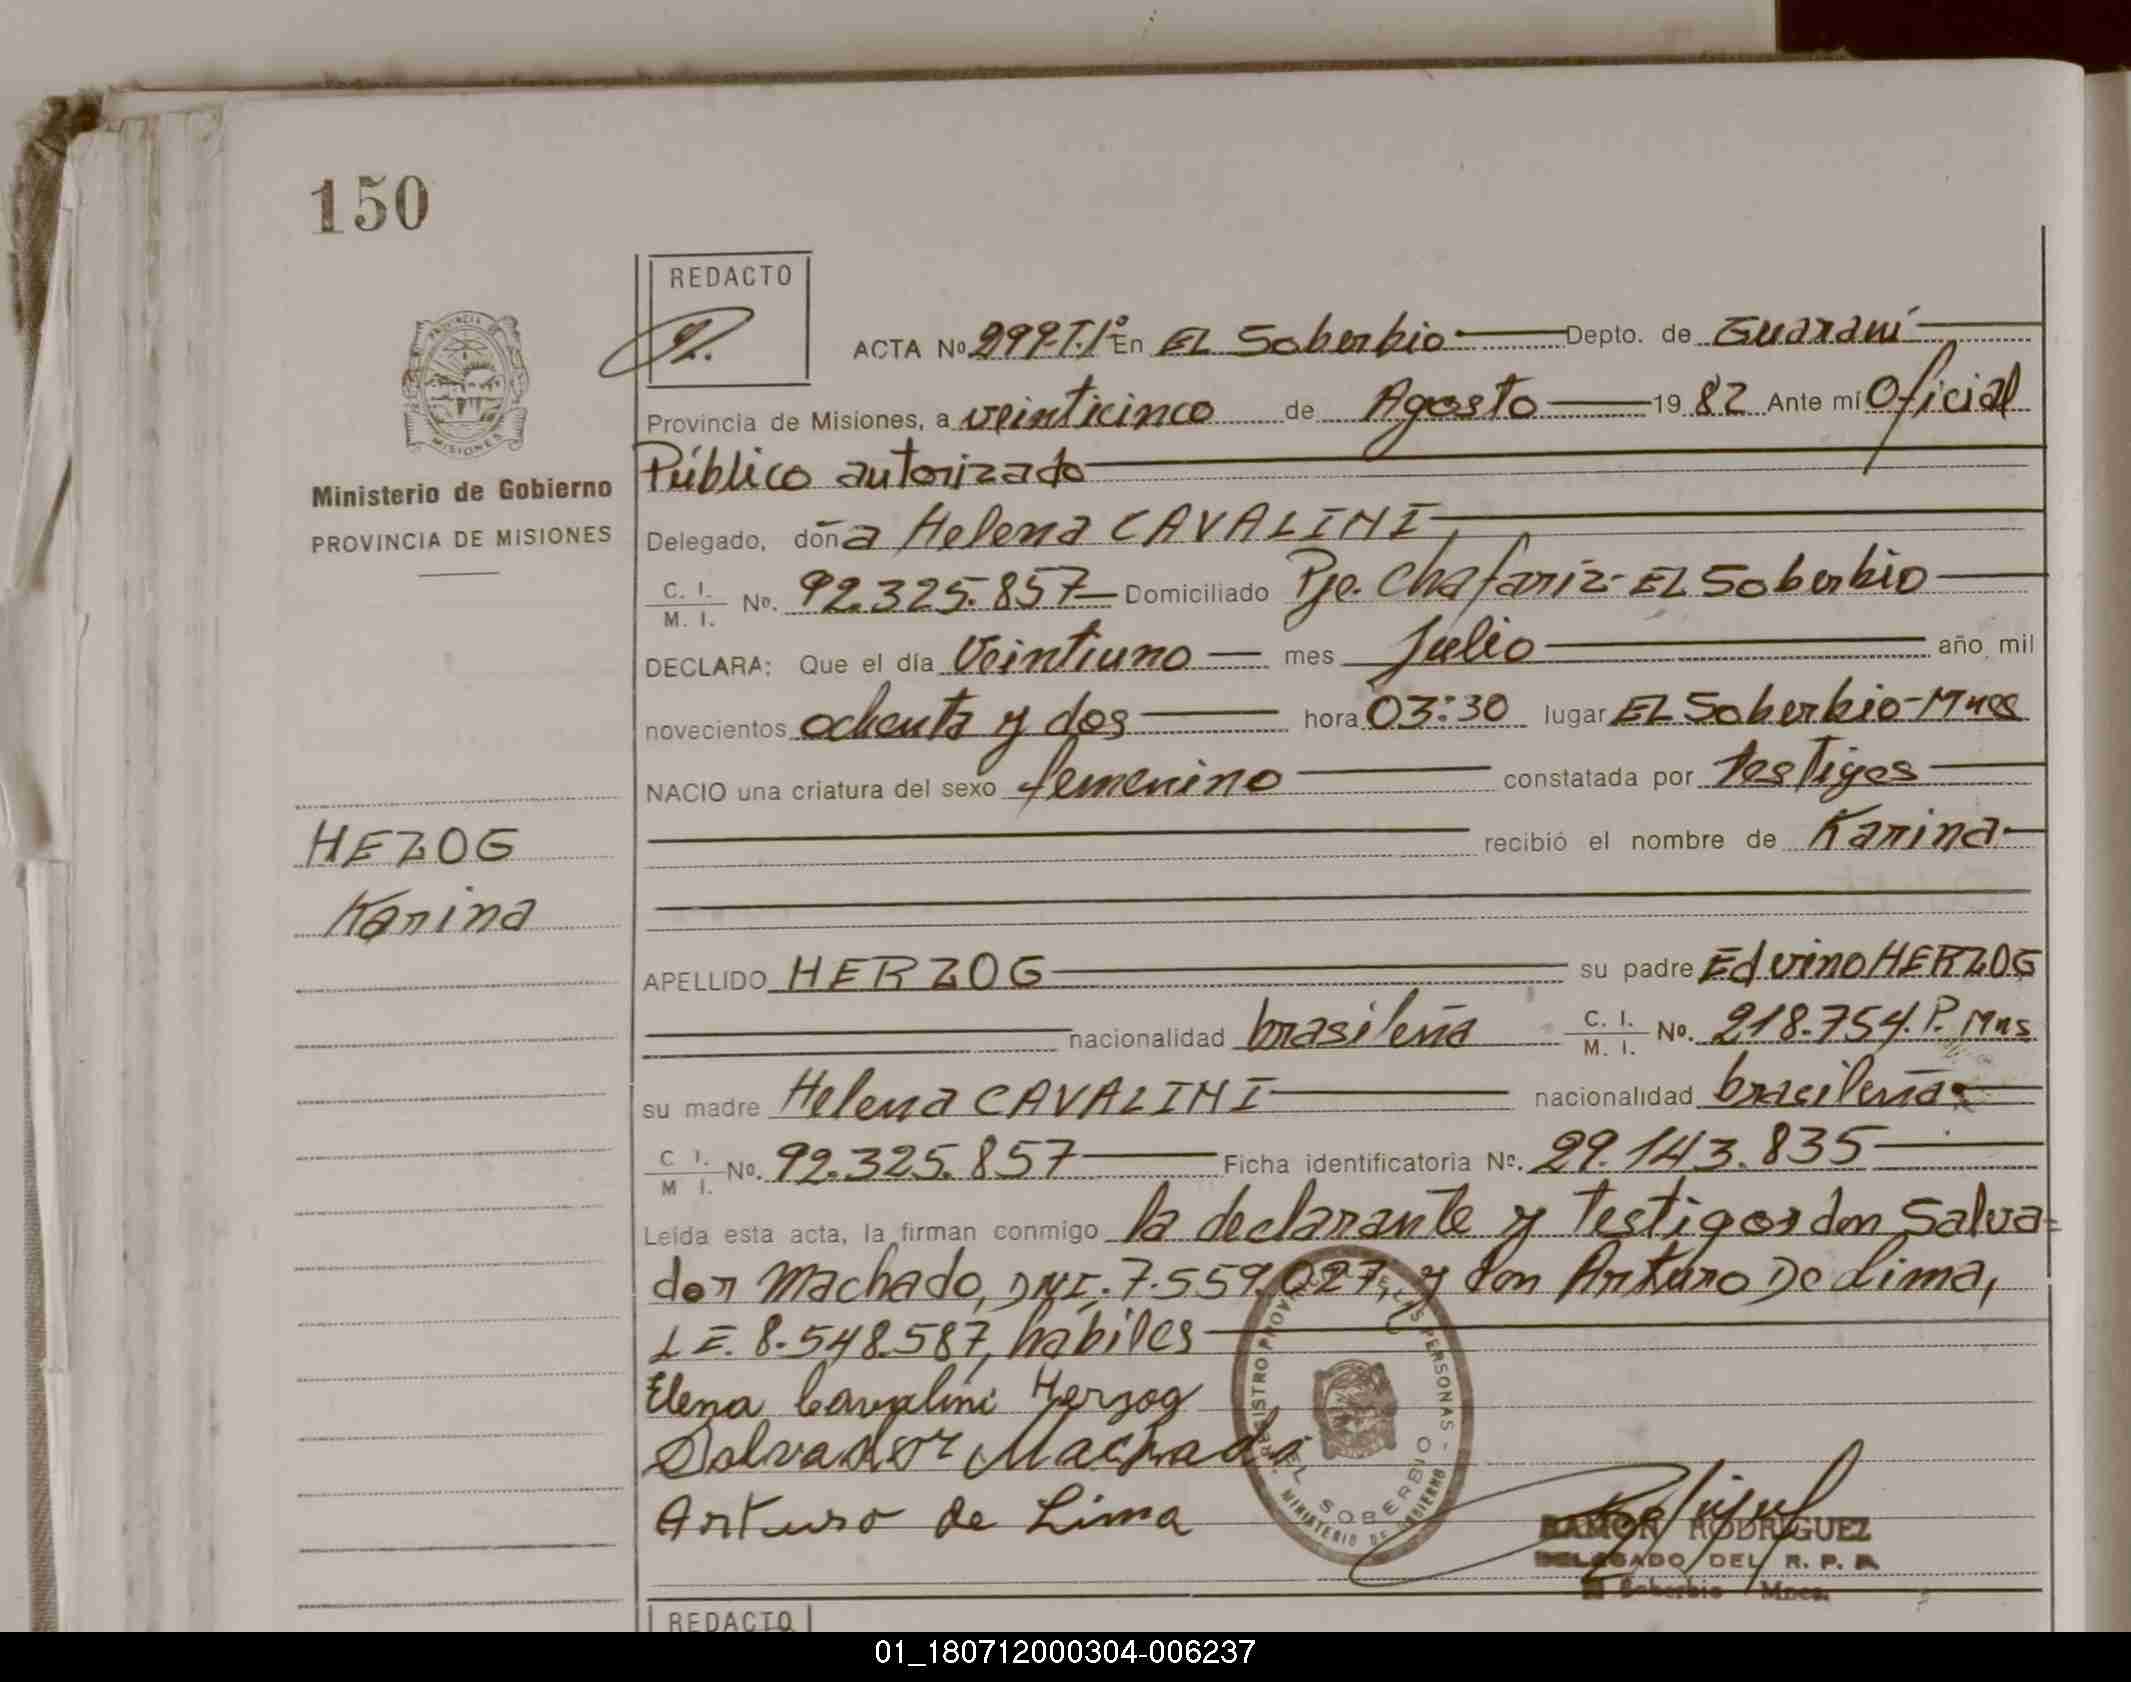 150
REDACTO
ACTA Nº 299-T.1º En EL Soberbio Depto. de Guaraní
Provincia de Misiones, a veinticinco de Agosto 1982 Ante mí Oficial
Público autorizado
PROVINCIA DE
MISIONES
Ministerio de Gobierno
PROVINCIA DE MISIONES
Delegado, doña Helena CAVALINI
C. I. M. I. No. 92.325.857 Domiciliado Pje. Chafariz - EL Soberbio
DECLARA: Que el día Veintiuno mes Julio año mil
novecientos ochenta y dos hora 03:30 lugar EL Soberbio-Mnes
NACIO una criatura del sexo femenino constatada por testigos
recibió el nombre de Karina
HEZOG
Karina
APELLIDO HERZOG su padre Edvino HERZOG
nacionalidad brasileña C. I. M. I. No. 218.754.P. Mns
su madre Helena CAVALINI nacionalidad brasileña
C I. M I. No. 92.325.857 Ficha identificatoria Nº. 29.143.835
Leída esta acta, la firman conmigo la declarante y testigos don Salva=
dor Machado, DNI. 7.559.027, y don Arturo De Lima,
LE. 8.548.587, hábiles
Elena Cavalini Herzog
Salvador Machado
Arturo de Lima
REGISTRO PROVINCIAL DE LAS PERSONAS -
EL SOBERBIO
MINISTERIO DE GOBIERNO
RAMON RODRIGUEZ
DELEGADO DEL R. P. P.
El Soberbio Mnes.
REDACTO
01_180712000304-006237